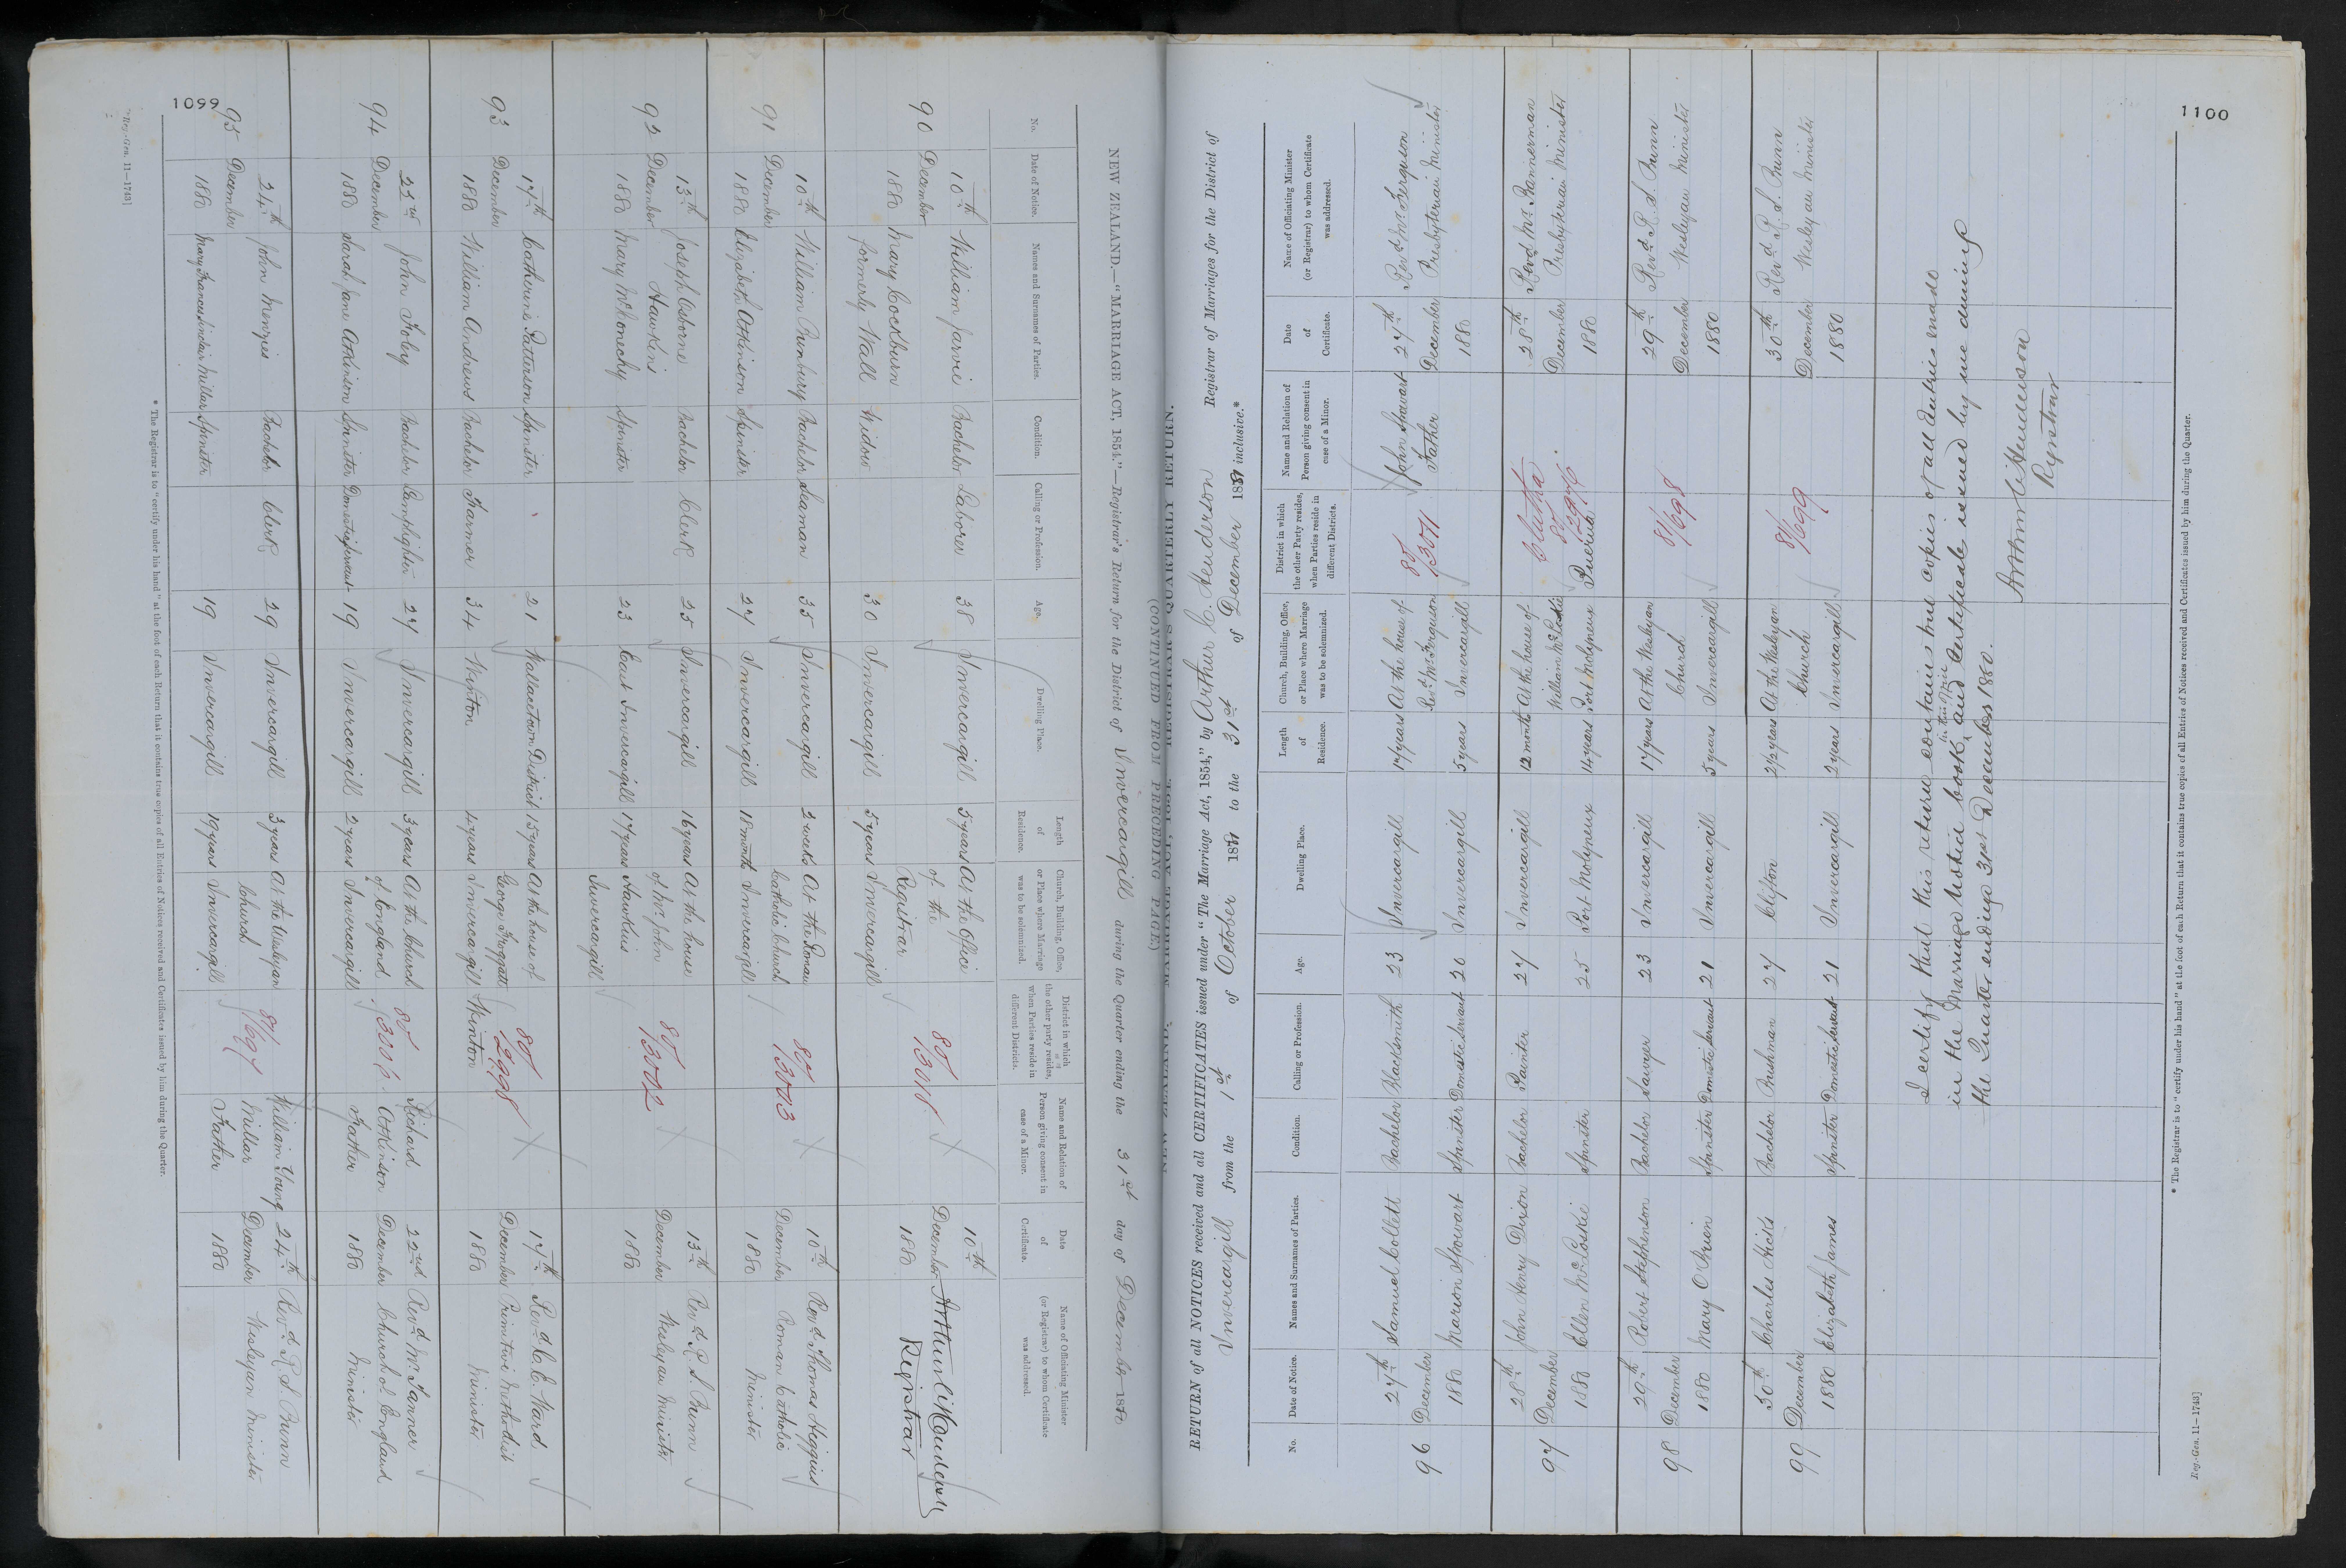 1099
NEW ZEALAND.—"MARRIAGE ACT, 1854."—Registrar's Return for the District of Invercargill during the Quarter ending the 31st day of December 1880
(CONTINUED FROM PRECEDING PAGE.)
No.
Date of Notice.
Names and Surnames of Parties.
Condition.
Calling or Profession.
Age.
Dwelling Place.
Length of Residence.
Church, Building, Office, or Place where Marriage was to be solemnized.
District in which the other party resides, when Parties reside in different Districts.
Name and Relation of Person giving consent in case of a Minor.
Date of Certificate.
Name of Officiating Minister (or Registrar) to whom Certificate was addressed.
90 10th December 1880
William Jarvie Bachelor Laborer 38 Invercargill 5 years
Mary Cockburn formerly Wall Widow 30 Invercargill 5 years
At the Office of the Registrar Invercargill
80/3018
10th December 1880
Registrar
91 10th December 1880
William Bachelor Seaman 35 Invercargill 3 weeks
Elizabeth Atkinson Spinster 27 Invercargill 18 months
At the Roman Catholic Church Invercargill
80/3003
10th December 1880
Revd. Thomas Higgins Roman Catholic Minister
92 13th December 1880
Joseph Osborne Hawkins Bachelor Clerk 25 Invercargill 16 years
Mary McKonechy Spinster 23 East Invercargill 17 years
At the house of Mr. John Hawkins Invercargill
80/3002
13th December 1880
Revd. R. S. Bunn Wesleyan Minister
93 17th December 1880
Catherine Patterson Spinster 21 Wallacetown District 15 years
William Andrews Bachelor Farmer 34 Winton 4 years
At the house of George Froggatt Invercargill
Winton
80/2998
17th December 1880
Revd. C. E. Ward Primitive Methodist Minister
94 22nd December 1880
John Foley Bachelor Lamplighter 27 Invercargill 3 years
Sarah Jane Atkinson Spinster Domestic Servant 19 Invercargill 2 years
At the Church of England Invercargill
80/3006
Richard Atkinson Father
22nd December 1880
Revd. Mr. Tanner Church of England Minister
95 24th December 1880
John Menzies Bachelor Clerk 29 Invercargill 3 years
Mary Frances Sinclair Millar Spinster 19 Invercargill 19 years
At the Wesleyan Church Invercargill
81/697
William Young Millar Father
24th December 1880
Revd. R. S. Bunn Wesleyan Minister
* The Registrar is to "certify under his hand" at the foot of each Return that it contains true copies of all Entries of Notices received and Certificates issued by him during the Quarter.
Reg.-Gen. 11—1743]
1100
NEW ZEALAND. MARRIAGE ACT, 1854. REGISTRAR'S QUARTERLY RETURN.
RETURN of all NOTICES received and all CERTIFICATES issued under "The Marriage Act, 1854," by Arthur C. Henderson Registrar of Marriages for the District of
Invercargill from the 1st of October 1880 to the 31st of December 1880 inclusive.*
No.
Date of Notice.
Names and Surnames of Parties.
Condition.
Calling or Profession.
Age.
Dwelling Place.
Length of Residence.
Church, Building, Office, or Place where Marriage was to be solemnized.
District in which the other Party resides, when Parties reside in different Districts.
Name and Relation of Person giving consent in case of a Minor.
Date of Certificate.
Name of Officiating Minister (or Registrar) to whom Certificate was addressed.
96 27th December 1880
Samuel Collett Bachelor Blacksmith 23 Invercargill 17 years
Marion Stewart Spinster Domestic Servant 20 Invercargill 5 years
At the house of Revd. Mr. Ferguson Invercargill
80/3011
John Stewart Father
27th December 1880
Revd. Mr. Ferguson Presbyterian Minister
97 28th December 1880
John Henry Dixon Bachelor Painter 27 Invercargill 12 months
Ellen McLoskie Spinster 25 Port Molyneux 14 years
At the house of William McLoskie Port Molyneux
Clutha 80/2976
Puerua
28th December 1880
Revd. Mr. Bannerman Presbyterian Minister
98 29th December 1880
Robert Stephenson Bachelor Sawyer 23 Invercargill 17 years
Mary O'Brien Spinster Domestic Servant 21 Invercargill 5 years
At the Wesleyan Church Invercargill
81/698
29th December 1880
Revd. R. S. Bunn Wesleyan Minister
99 30th December 1880
Charles Hicks Bachelor Bushman 27 Clifton 2 1/2 years
Elizabeth James Spinster Domestic Servant 21 Invercargill 2 years
At the Wesleyan Church Invercargill
81/699
30th December 1880
Revd. R. S. Bunn Wesleyan Minister
I certify that this return contains true copies of all Entries made
in the Marriage Notice book in this Office and Certificate issued by me during
the Quarter ending 31st December 1880.
Arthur C. Henderson
Registrar
* The Registrar is to "certify under his hand" at the foot of each Return that it contains true copies of all Entries of Notices received and Certificates issued by him during the Quarter.
Reg.-Gen. 11—1743]